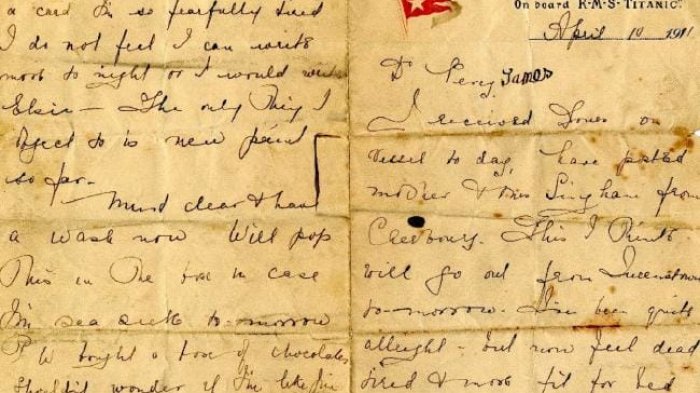 On board R·M·S·"TITANIC".
April 10 1911
Dr Percy James
I received yours on
vessel to day, have posted
mother & Miss Lingham from
Cherbourg. This I think
will go out from Queenstown
to-morrow. I've been quite
allright - but now feel dead
tired & more fit for bed
a card I'm so fearfully tired
I do not feel I can write
more to night or I would write
Elsie - The only thing I
object to is new paint
so far.
Must clear & have
a wash now Will pop
This in The box in case
I'm sea sick to-morrow
P W bought a box of chocolates
Shouldn't wonder if I'm like Jim